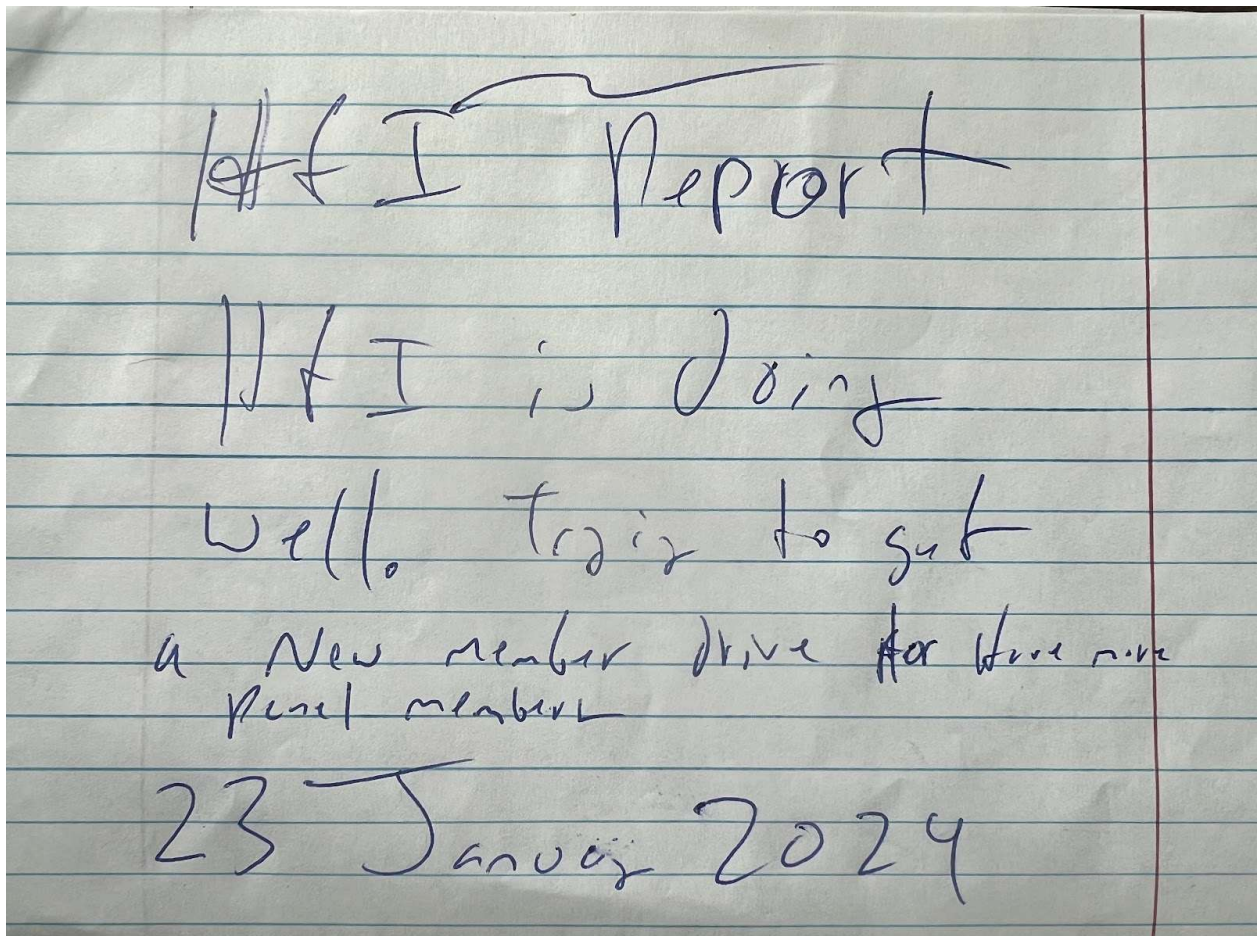 H & I Report
H & I is doing
well. Trying to get
a New member drive for more
Panel members
23 January 2024